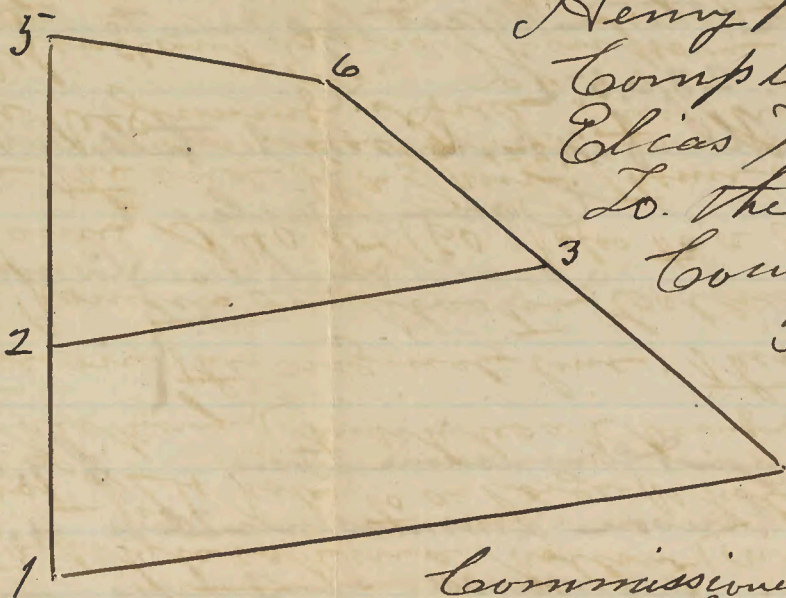 5
6
3
2
1
Henry
Comp
Elias
To. the
Cou
Commissione